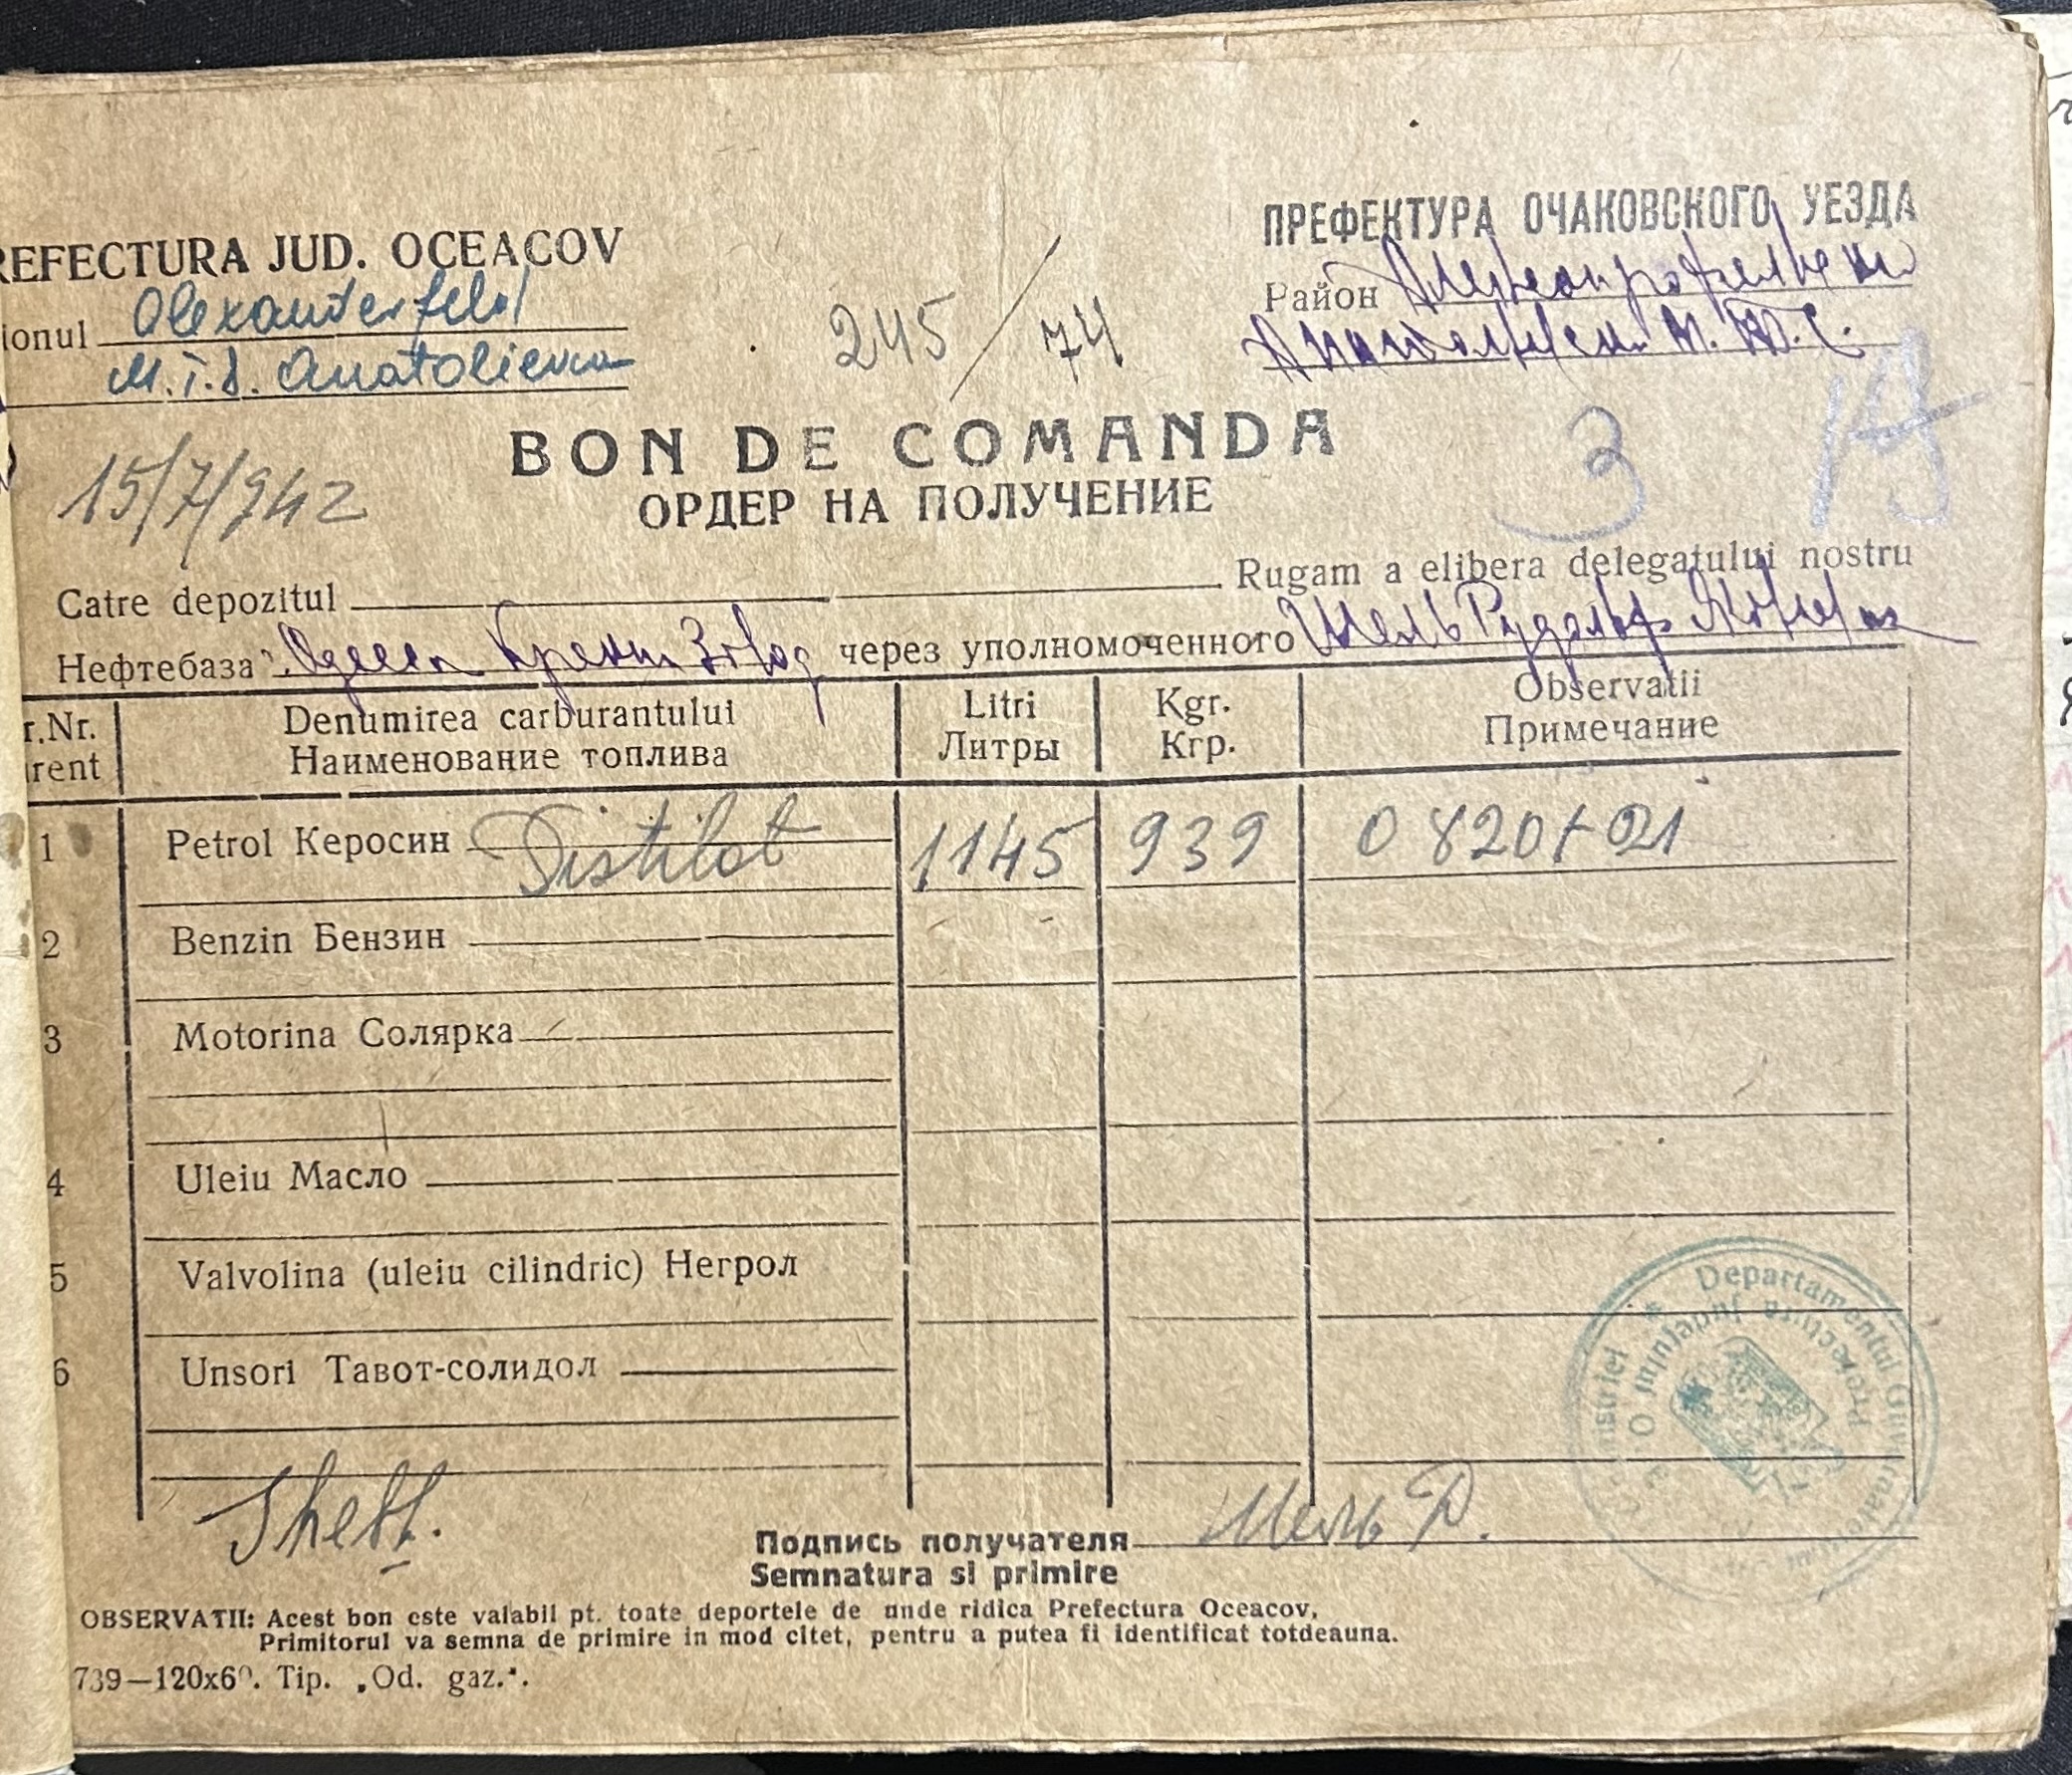 REFECTURA JUD. OCEACOV
ionul Alexanderfeld
M.T.S. Anatolievca
245/74
ПРЕФЕКТУРА ОЧАКОВСКОГО УЕЗДА
Район
М.Т.С.
15/7/942
BON DE COMANDA
ОРДЕР НА ПОЛУЧЕНИЕ
3
Catre depozitul Rugam a elibera delegatului nostru
Нефтебаза Одесса Завод через уполномоченного Рудольф
r.Nr. Denumirea carburantului Litri Kgr. Observatii
rent Наименование топлива Литры Кгр. Примечание
1 Petrol Керосин Distilat 1145 939 0820/+21
2 Benzin Бензин
3 Motorina Солярка
4 Uleiu Масло
5 Valvolina (uleiu cilindric) Негрол
6 Unsori Тавот-солидол
Подпись получателя
Semnatura si primire
Departamentul
Prefectura Județului
OBSERVATII: Acest bon este valabil pt. toate deportele de unde ridica Prefectura Oceacov,
Primitorul va semna de primire in mod citet, pentru a putea fi identificat totdeauna.
739—120x60. Tip. „Od. gaz.".